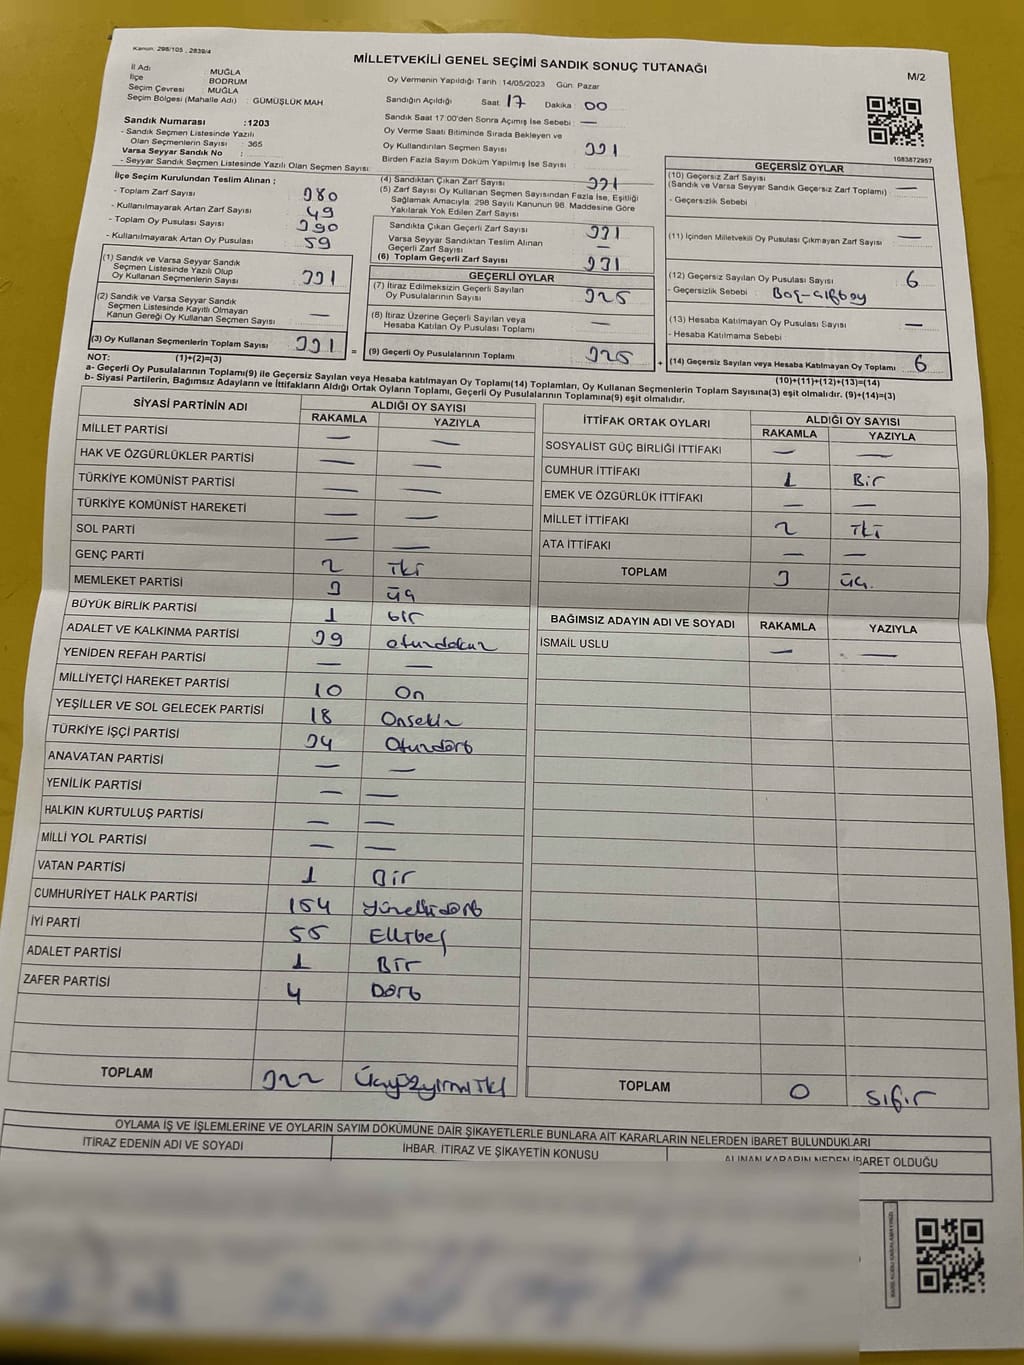 Kanun: 298/105 , 2839/4
MİLLETVEKİLİ GENEL SEÇİMİ SANDIK SONUÇ TUTANAĞI
M/2
İl Adı : MUĞLA
İlçe : BODRUM
Seçim Çevresi : MUĞLA
Seçim Bölgesi (Mahalle Adı) : GÜMÜŞLÜK MAH
Sandık Numarası : 1203
- Sandık Seçmen Listesinde Yazılı Olan Seçmenlerin Sayısı : 365
Varsa Seyyar Sandık No :
- Seyyar Sandık Seçmen Listesinde Yazılı Olan Seçmen Sayısı:
Oy Vermenin Yapıldığı Tarih :14/05/2023 Gün: Pazar
Sandığın Açıldığı Saat: 17 Dakika 00
Sandık Saat 17:00'den Sonra Açımış İse Sebebi : —
Oy Verme Saati Bitiminde Sırada Bekleyen ve
Oy Kullandırılan Seçmen Sayısı 331
Birden Fazla Sayım Döküm Yapılmış İse Sayısı
1083872957
İlçe Seçim Kurulundan Teslim Alınan ;
- Toplam Zarf Sayısı 380
- Kullanılmayarak Artan Zarf Sayısı 49
- Toplam Oy Pusulası Sayısı 390
- Kullanılmayarak Artan Oy Pusulası 59
(1) Sandık ve Varsa Seyyar Sandık
Seçmen Listesinde Yazılı Olup
Oy Kullanan Seçmenlerin Sayısı 331
(2) Sandık ve Varsa Seyyar Sandık
Seçmen Listesinde Kayıtlı Olmayan
Kanun Gereği Oy Kullanan Seçmen Sayısı —
(3) Oy Kullanan Seçmenlerin Toplam Sayısı 331
(4) Sandıktan Çıkan Zarf Sayısı 331
(5) Zarf Sayısı Oy Kullanan Seçmen Sayısından Fazla İse, Eşitliği
Sağlamak Amacıyla, 298 Sayılı Kanunun 98. Maddesine Göre
Yakılarak Yok Edilen Zarf Sayısı
Sandıkta Çıkan Geçerli Zarf Sayısı 331
Varsa Seyyar Sandıktan Teslim Alınan
Geçerli Zarf Sayısı —
(6) Toplam Geçerli Zarf Sayısı 331
GEÇERLİ OYLAR
(7) İtiraz Edilmeksizin Geçerli Sayılan
Oy Pusulalarının Sayısı 325
(8) İtiraz Üzerine Geçerli Sayılan veya
Hesaba Katılan Oy Pusulası Toplamı —
= (9) Geçerli Oy Pusulalarının Toplamı 325
GEÇERSİZ OYLAR
(10) Geçersiz Zarf Sayısı
(Sandık ve Varsa Seyyar Sandık Geçersiz Zarf Toplamı) —
- Geçersizlik Sebebi
(11) İçinden Milletvekili Oy Pusulası Çıkmayan Zarf Sayısı —
(12) Geçersiz Sayılan Oy Pusulası Sayısı 6
- Geçersizlik Sebebi :
(13) Hesaba Katılmayan Oy Pusulası Sayısı —
- Hesaba Katılmama Sebebi
+ (14) Geçersiz Sayılan veya Hesaba Katılmayan Oy Toplamı 6
NOT: (1)+(2)=(3)
(10)+(11)+(12)+(13)=(14)
a- Geçerli Oy Pusulaların Toplamı(9) ile Geçersiz Sayılan veya Hesaba katılmayan Oy Toplamı(14) Toplamları, Oy Kullanan Seçmenlerin Toplam Sayısına(3) eşit olmalıdır. (9)+(14)=(3)
b- Siyasi Partilerin, Bağımsız Adayların ve İttifakların Aldığı Ortak Oyların Toplamı, Geçerli Oy Pusulalarının Toplamına(9) eşit olmalıdır.
SİYASİ PARTİNİN ADI ALDIĞI OY SAYISI
RAKAMLA YAZIYLA
MİLLET PARTİSİ — —
HAK VE ÖZGÜRLÜKLER PARTİSİ — —
TÜRKİYE KOMÜNİST PARTİSİ — —
TÜRKİYE KOMÜNİST HAREKETİ — —
SOL PARTİ — —
GENÇ PARTİ 2 İki
MEMLEKET PARTİSİ 3 üç
BÜYÜK BİRLİK PARTİSİ 1 bir
ADALET VE KALKINMA PARTİSİ 39 otuzdokuz
YENİDEN REFAH PARTİSİ — —
MİLLİYETÇİ HAREKET PARTİSİ 10 On
YEŞİLLER VE SOL GELECEK PARTİSİ 18 Onsekiz
TÜRKİYE İŞÇİ PARTİSİ 34 Otuzdört
ANAVATAN PARTİSİ — —
YENİLİK PARTİSİ — —
HALKIN KURTULUŞ PARTİSİ — —
MİLLİ YOL PARTİSİ — —
VATAN PARTİSİ 1 Bir
CUMHURİYET HALK PARTİSİ 154 yüzellidört
İYİ PARTİ 55 Ellibeş
ADALET PARTİSİ 1 Bir
ZAFER PARTİSİ 4 Dört
TOPLAM 322 Üçyüzyirmiİki
İTTİFAK ORTAK OYLARI ALDIĞI OY SAYISI
RAKAMLA YAZIYLA
SOSYALİST GÜÇ BİRLİĞİ İTTİFAKI — —
CUMHUR İTTİFAKI 1 Bir
EMEK VE ÖZGÜRLÜK İTTİFAKI — —
MİLLET İTTİFAKI 2 İki
ATA İTTİFAKI — —
TOPLAM 3 üç.
BAĞIMSIZ ADAYIN ADI VE SOYADI RAKAMLA YAZIYLA
İSMAİL USLU — —
TOPLAM 0 sıfır
OYLAMA İŞ VE İŞLEMLERİNE VE OYLARIN SAYIM DÖKÜMÜNE DAİR ŞİKAYETLERLE BUNLARA AİT KARARLARIN NELERDEN İBARET BULUNDUKLARI
İTİRAZ EDENİN ADI VE SOYADI
İHBAR, İTİRAZ VE ŞİKAYETİN KONUSU
ALINAN KARARIN NEDEN İBARET OLDUĞU